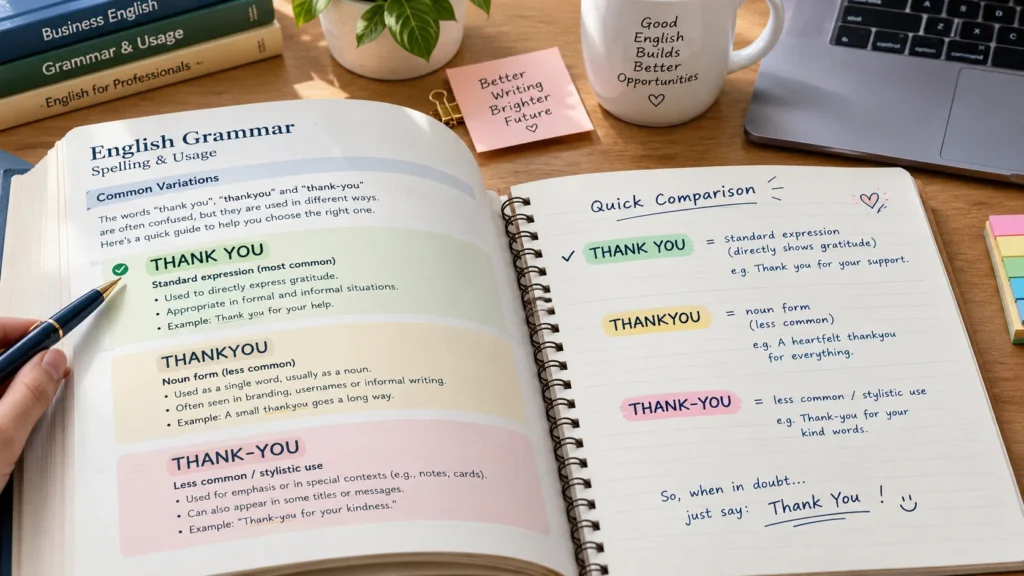 Business English
Grammar & Usage
English for Professionals
Better
Writing
Brighter
Future
Good
English
Builds
Better
Opportunities
control
option
command
English Grammar
Spelling & Usage
Common Variations
The words "thank you", "thankyou" and "thank-you"
are often confused, but they are used in different ways.
Here's a quick guide to help you choose the right one.
THANK YOU
Standard expression (most common)
• Used to directly express gratitude.
• Appropriate in formal and informal situations.
• Example: Thank you for your help.
THANKYOU
Noun form (less common)
• Used as a single word, usually as a noun.
• Often seen in branding, usernames or informal writing.
• Example: A small thankyou goes a long way.
THANK-YOU
Less common / stylistic use
• Used for emphasis or in special contexts (e.g., notes, cards).
• Can also appear in some titles or messages.
• Example: "Thank-you for your kindness."
Quick Comparison
THANK YOU = standard expression
(directly shows gratitude)
e.g. Thank you for your support.
THANKYOU = noun form
(less common)
e.g. A heartfelt thankyou
for everything.
THANK-YOU = less common / stylistic use
e.g. Thank-you for your
kind words.
So, when in doubt...
just say: Thank You !